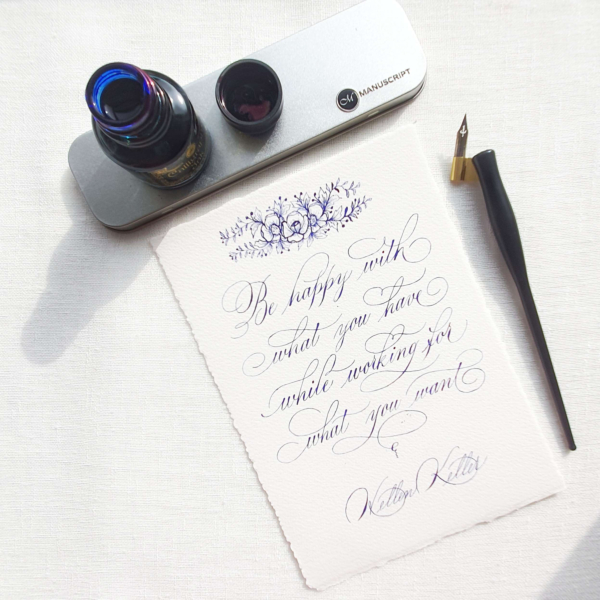 MANUSCRIPT
Be happy with
what you have
while working for
what you want
Hellen Keller